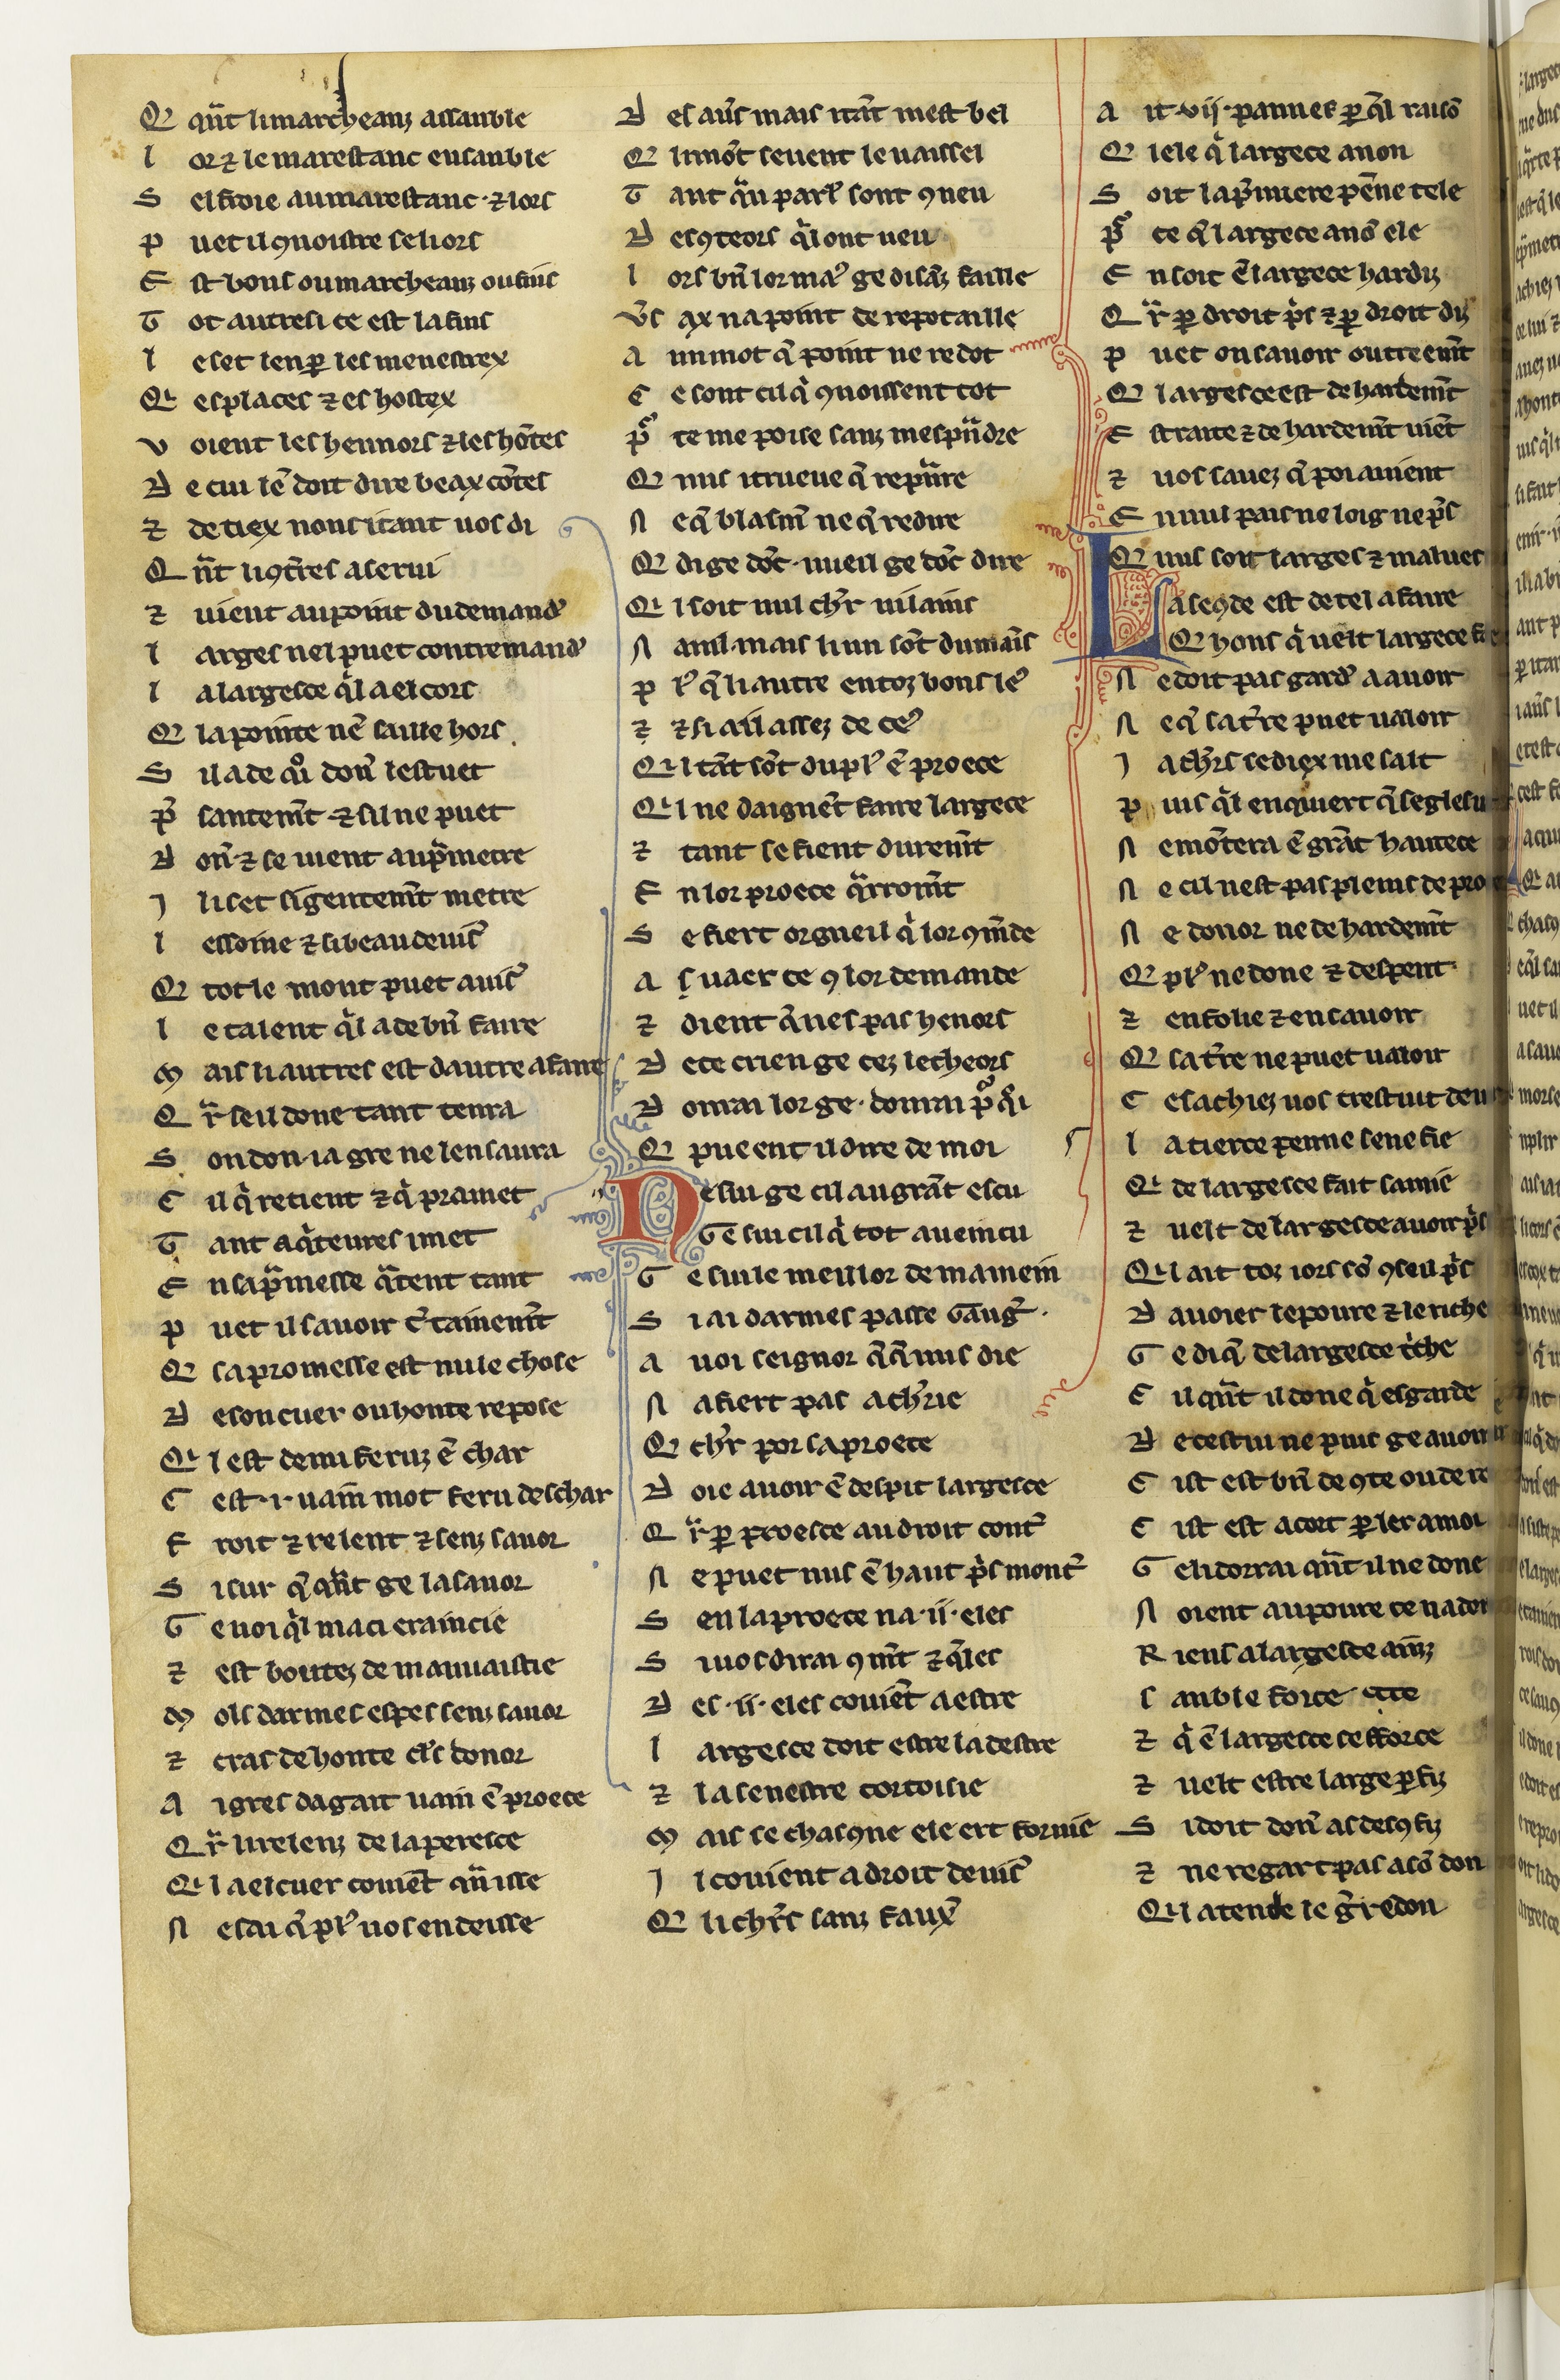 Q qñt li marcheanz assanble
L orz le marestanc ensanble
S el froie au marestanc · ⁊ lors
P uet il ꝯnoistre se li ors
E st bons ou marcheanz ou fins
T ot autresi ce est la fins
L es et len ꝑ les menestrex
Q es places ⁊ es hostex
V oient les hennors ⁊ les hõtes
D e cui lẽ doit dire beax cõtes
⁊ de tiex nons itant vos di
Q ñt li ꝯtres a servi
⁊ vient au point du demand̾
L arges nel puet contremand̾
L a largesce qͥl a el cors
Q la pointe nẽ saille hors
S il a de qͦi don̾ lestuet
P̾ santem̃t ⁊ sil ne puet
D on̾ ⁊ se vient au ꝓmetre
I l i set si gentem̃t metre
L essoine ⁊ si beau devis̾
Q tot le mont puet avis̾
L e talent qͥl a de bñ faire
M ais li autres est dautre afaire
Q ͣr seil done tant tenra
S on don · ia gre ne len saura
C il qͥ retient ⁊ qͥ pramet
T ant a qͥteures i met
E n sa pͣmesse qͣtent tant
P uet il savoir c̾tainem̃t
Q sa promesse est nule chose
D e son cuer ou honte repose
Q l est demi feruz ẽ char
C est · i · vaim̃ mot feru deschar
F roit ⁊ relent ⁊ senz savor
S i sur q̃ qñt ge la savor
G e voi qͥl ma ci eraincie
⁊ est boutez de mauvaistie
M ols darmes espes senz savor
⁊ cras de honte cl̾s donor
A igres dagait vain ẽ proece
Q ͣr li relenz de la peresce
Q l a el cuer coviẽt qñ isse
N e sai q̃ pl̾ vos en deisse
D es aut̾s mais itãt mest bel
Q li mõt sevent le vaissel
T ant qͣu parl̾ sont ꝯneu
D es ꝯteors qͥl ont veu
L ors bñ lor ma̾ ge di sãz faille
Vs ax na point de repotaille
A un mot q̃ point ne redot
C e sont cil qͥ ꝯnoissent tot
P̾ ce me poise sanz mespñdre
Q nus i trueve q̃ reprͣre
N e q̃ blasm̾ ne q̃ redire
Q di ge dõc · vueil ge dõc dire
Q l soit nul ch̾r vilains
N anil · mais li un sõt du mais̃
P l̾ q̃ li autre en toz bons le̾
⁊ ⁊ si a il assez de ce̾
Q l tãt sõt du pl̾ ẽ proece
Q l ne daignẽt faire largece
⁊ tant se fient durem̃t
E n lor proece qͣrrom̃t
S e fiert orgueil qͥ lor ꝯm̃de
A s vaer ce ꝯ lor demande
⁊ dient qͣ nes pas henors
D ece crien ge cez lecheors
D onrai lor ge · donrai pͦ qͦi
Q pueent il dire de moi
N e sui ge cil au grãt escu
G e sui cil qͥ tot a veincu
G e sui le meillor de ma mein
S i ai darmes passe Gaug̾ ·
A voi seignor q̃ q̃ nus die
N afiert pas a ch̾rie
Q ch̾r por sa proece
D oie avoir ẽ despit largesce
Q ͣr ꝑ proesce au droit cont̾
N e puet nus ẽ haut pͥs mont̾
S en la proece na · ii · eles
S i vos dirai ꝯm̃t ⁊ qͣles
D es · ii · eles coviẽt a estre
L argesce doit estre la destre
⁊ la senestre cortoisie
M ais se chasꝯne ele ert fornie
I l covient a droit devis̾
Q li ch̾rs sanz faux̾
A it · vii · pannes ꝑ qͣl raisõ
Q i ele qͥ largece a non
S oit la pͥmiere pẽne tele
P̾ ce q̃ largece a nõ ele
E n soit ẽ largece hardiz
Q ͣr ꝑ droit pͥs ⁊ ꝑ droit diz
P uet on savoir outreem̃t
Q largesce est de hardem̃t
E straite ⁊ de hardem̃t viẽt
⁊ vos savez q̃ poi avient
E n nul pais ne loig ne pͥs
Q nus soit larges ⁊ malves
L a seꝯde est de tel afaire
Q hons qͥ velt largece f
N e doit pas gard̾ a avoir
N e q̃ sa t̾re puet valoir
I a ch̾rs se diex me salt
P uis qͥl enquiert q̃ segles
N e mõtera ẽ grãt hautece
N e cil nest pas pleins de pro
N e donor ne de hardem̃t
Q pl̾ ne done ⁊ despent
⁊ en folie ⁊ en savoir
Q sa t̾re ne puet valoir
C e sachiez vos trestuit
L a tierce penne senefie
Q de largesce fait samie
⁊ velt de largesce avoir pͥs
Q l ait toz iors sõ ꝯseil pͥs
D avoier le poure ⁊ le riche
G e di q̃ de largesce t̾che
C il qñt il done qͥ esgarde
D e cestui ne puis ge avoir
C ist est bñ de ꝯte ou de
C ist est acort ꝑ ler amor
G eli dorrai qñt il ne done
N oient au poure ce na
R iens a largesce ainz
S anble force
⁊ qͥ ẽ largesce sefforce
⁊ velt estre large ꝑfiz
S i doit don̾ as desꝯfiz
⁊ ne regart pas a sõ don
Q l atende le g̾redon